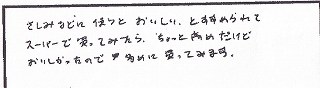 さしみなどに使うと おいしい、とすすめられて
スーパーで買ってみたら、ちょっと高めだけど
おいしかったので 多めに買ってみます。